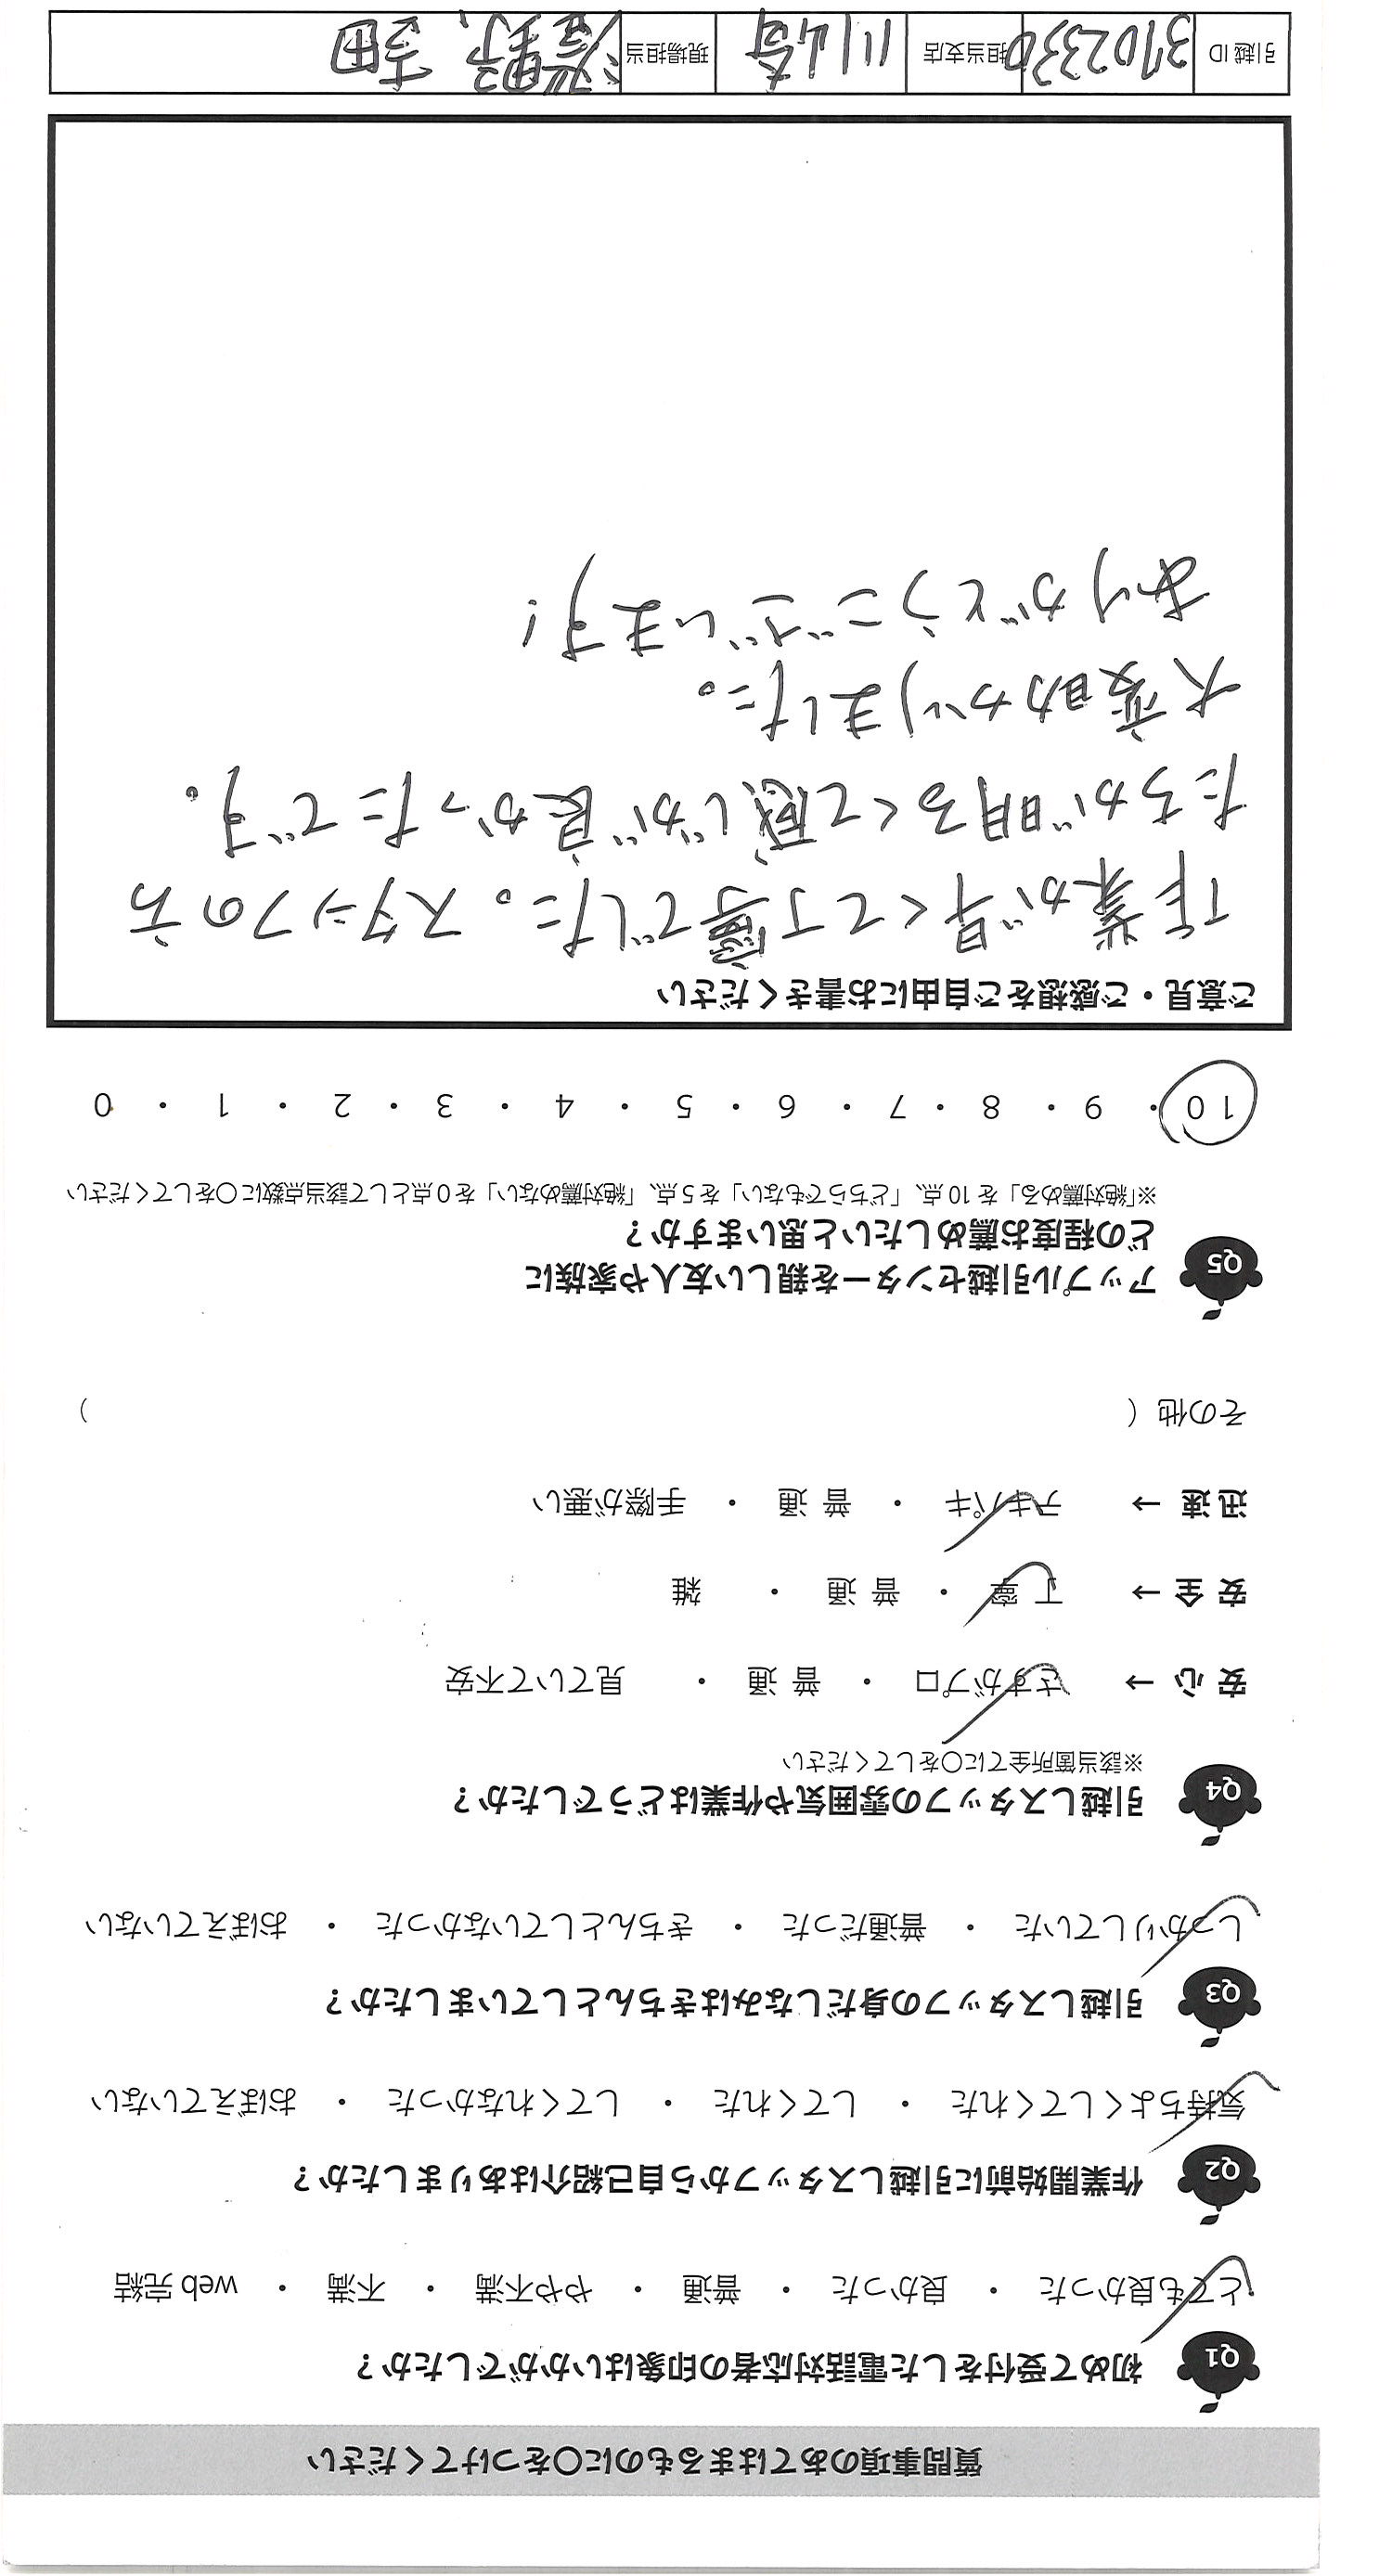 質問事項のあてはまるものに〇をつけてください
Q1 初めて受付をした電話対応者の印象はいかがでしたか？
とても良かった ・ 良かった ・ 普通 ・ やや不満 ・ 不満 ・ web 完結
Q2 作業開始前に引越しスタッフから自己紹介はありましたか？
気持ちよくしてくれた ・ してくれた ・ してくれなかった ・ おぼえていない
Q3 引越しスタッフの身だしなみはきちんとしていましたか？
しっかりしていた ・ 普通だった ・ きちんとしていなかった ・ おぼえていない
Q4 引越しスタッフの雰囲気や作業はどうでしたか？
※該当箇所全てに〇をしてください
安 心 → さすがプロ ・ 普 通 ・ 見ていて不安
安 全 → 丁 寧 ・ 普 通 ・ 雑
迅 速 → テキパキ ・ 普 通 ・ 手際が悪い
その他 （ ）
Q5 アップル引越センターを親しい友人や家族に
どの程度お薦めしたいと思いますか？
※「絶対薦める」を 10 点、「どちらでもない」を 5 点、「絶対薦めない」を 0 点として該当点数に〇をしてください
10 ・ 9 ・ 8 ・ 7 ・ 6 ・ 5 ・ 4 ・ 3 ・ 2 ・ 1 ・ 0
ご意見・ご感想をご自由にお書きください
作業が早くて丁寧でした。スタッフの方
たちが明るくて感じが良かったです。
大変助かりました。
ありがとうございます!
引越 ID 3702330 担当支店 川崎 現場担当 吉田